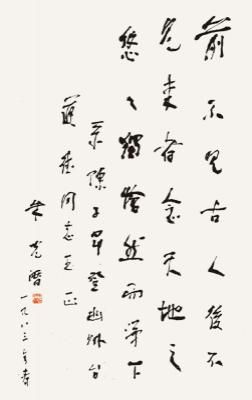 前不見古人後不
見来者念天地之
悠々獨愴然而涕下
录陈子昂登幽州台
同志正
朱光潜
一九八三年春